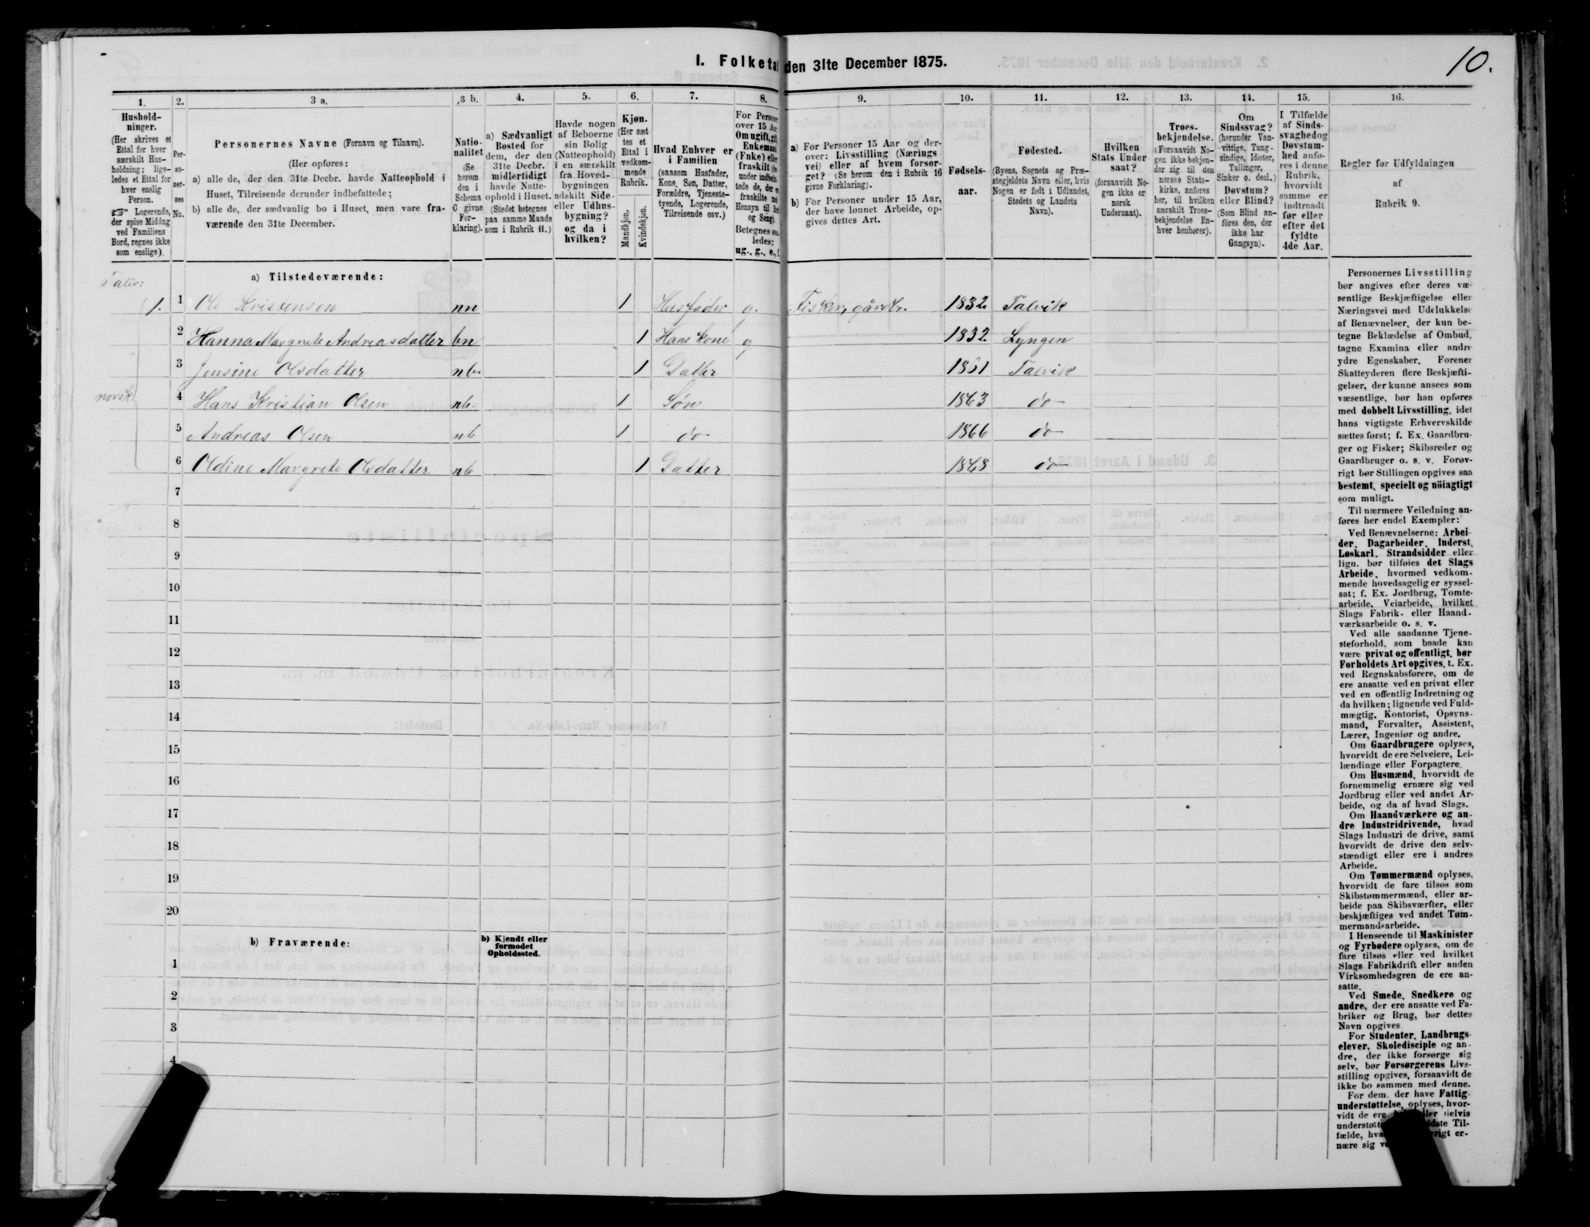 I. Folketal den 31te December 1875.
10.
1.
2.
3 a.
3 b.
4.
5.
6.
7.
8.
9.
10.
11.
12.
13.
14.
15.
16.
Hushold-
ninger.
(Her skrives et
Ettal for hver
særskilt Hus-
holdning; lige-
ledes et Ettal for
hver enslig
Person.
☞ Logerende,
der spise Middag
ved Familiens
Bord, regnes ikke
som enslige).
Per-
so-
ner-
nes
No.
Personernes Navne (Fornavn og Tilnavn).
(Her opføres:
a) alle de, der den 31te Decbr. havde Natteophold i
Huset, Tilreisende derunder indbefattede;
b) alle de, der sædvanlig bo i Huset, men vare fra-
værende den 31te December.
Natio-
nalitet
(Se
herom
den i
Schema
6 givne
For-
klaring).
a) Sædvanligt
Bosted for
dem, der den
31te Decbr.
midlertidigt
havde Natte-
ophold i Huset.
(Stedet betegnes
paa samme Maade
som i Rubrik 11.)
Havde nogen
af Beboerne
sin Bolig
(Natteophold)
i en særskilt
fra Hoved-
bygningen
adskilt Side-
eller Udhus-
bygning?
og da i
hvilken?
Kjøn.
(Her sæt-
tes et
Ettal i
vedkom-
mende
Rubrik.
Mandkjøn.
Kvindekjøn.
Hvad Enhver er
i Familien
(saasom Husfader,
Kone, Søn, Datter,
Forældre, Tjeneste-
tyende, Logerende,
Tilreisende osv.)
For Persone
over 15 Aar
Om ugift, gift,
Enkemand
(Enke) eller
fraskilt
Betegnes saa-
ledes:
ug., g., e., f.
a) For Personer 15 Aar og der-
over: Livsstilling (Nærings-
vei) eller af hvem forsør-
get? (Se herom den i Rubrik 16
givne Forklaring).
b) For Personer under 15 Aar,
der have lønnet Arbeide, op-
gives dettes Art.
Fødsels-
aar.
Fødested.
(Byens, Sognets og Præ-
stegjeldets Navn eller, hvis
Nogen er født i Udlandet,
Stedets og Landets
Navn).
Hvilken
Stats Under-
saat?
(forsaavidt No-
gen ikke er
norsk
Undersaat).
Troes-
bekjendelse.
(Forsaavidt No-
gen ikke bekjen-
der sig til den
norske Stats-
kirke, anføres
her, til hvilken
særskilt Troes-
bekjendelse En-
hver henhører).
Om
Sindssvag?
(herunder Van-
vittige, Tung-
sindige, Idioter,
Tullinger,
Sinker o. desl.)
Døvstum?
eller Blind?
(Som Blind an-
føres den, der
ikke har
Gangsyn).
I Tilfælde
af Sinds-
svaghed og
Døvstum-
hed anfø-
res i denne
Rubrik,
hvorvidt
samme er
indtraadt
før eller
efter det
fyldte
4de Aar.
Regler for Udfyldningen
af
Rubrik 9.
a) Tilstedeværende:
1. 1 nn 1 g. 1832 Talvik
2 Hanna Margrete Andreasdatter bn 1 Hans kone g 1832 Lyngen
3 Jensine Olsdatter nb 1 Datter Talvik
4 Hans Kristian Olsen nb. 1 Søn 1863 do
5 Andreas Olsen nb 1 do 1866 do
6 Oldine Margrete Olsdatter nb 1 Datter 1868 do
7
8
9
10
11
12
13
14
15
16
17
18
19
20
b) Fraværende:
b) Kjendt eller
formodet
Opholdssted.
1
2
3
4
Personernes Livsstilling
bør angives efter deres væ-
sentlige Beskjæftigelse eller
Næringsvei med Udelukkelse
af Benævnelser, der kun be-
tegne Beklædelse af Ombud,
tagne Examina eller andre
ydre Egenskaber. Forener
Skatteyderen flere Beskjæfti-
gelser, der kunne ansees som
væsentlige, bør han opføres
med dobbelt Livsstilling, idet
hans vigtigste Erhvervskilde
sættes først; f. Ex. Gaardbru-
ger og Fisker; Skibsreder og
Gaardbruger o. s. v. Forøv-
rigt bør Stillingen opgives saa
bestemt, specielt og nöiagtigt
som muligt.
Til nærmere Veiledning an-
føres her endel Exempler:
Ved Benævnelserne: Arbei-
der, Dagarbeider, Inderst,
Løskarl, Strandsidder eller
lign. bør tilføies det Slags
Arbeide, hvormed vedkom-
mende hovedsagelig er syssel-
sat; f. Ex. Jordbrug, Tomte-
arbeide, Veiarbeide, hvilket
Slags Fabrik- eller Haand-
værksarbeide o. s. v.
Ved alle saadanne Tjene-
steforhold, som baade kan
være privat og offentligt, bør
Forholdets Art opgives, t. Ex.
ved Regnskabsførere, om de
ere ansatte ved en privat eller
ved en offentlig Indretning og
da hvilken; lignende ved Fuld-
mægtig, Kontorist, Opsyns-
mand, Forvalter, Assistent,
Lærer, Ingeniør og andre.
Om Gaardbrugere oplyses,
hvorvidt de ere Selveiere, Lei-
lændinge eller Forpagtere.
Om Husmænd, hvorvidt de
fornemmelig ernære sig ved
Jordbrug eller ved andet Ar-
beide, og da af hvad Slags.
Om Haandværkere og an-
dre Industridrivende, hvad
Slags Industri de drive, samt
hvorvidt de drive den selv-
stændigt eller ere i andres
Arbeide.
Om Tømmermænd oplyses,
hvorvidt de fare tilsøs som
Skibstømmermænd, eller ar-
beide paa Skibsværfter, eller
beskjæftiges ved andet Tøm-
mermandsarbeide.
I Henseende til Maskinister
og Fyrbødere oplyses, om de
fare tilsøs eller ved hvilket
Slags Fabrikdrift eller anden
Virksomhedsgren de ere an-
satte.
Ved Smede, Snedkere og
andre, der ere ansatte ved Fa-
briker og Brug, bør dettes
Navn opgives
For Studenter, Landbrugs-
elever, Skoledisciple og an-
dre, der ikke forsørge sig
selv, bør Forsørgerens Livs-
stilling opgives, forsaavidt de
ikke bo sammen med denne.
For dem, der have Fattig-
understøttelse, oplyses, hvor-
vidt de ere